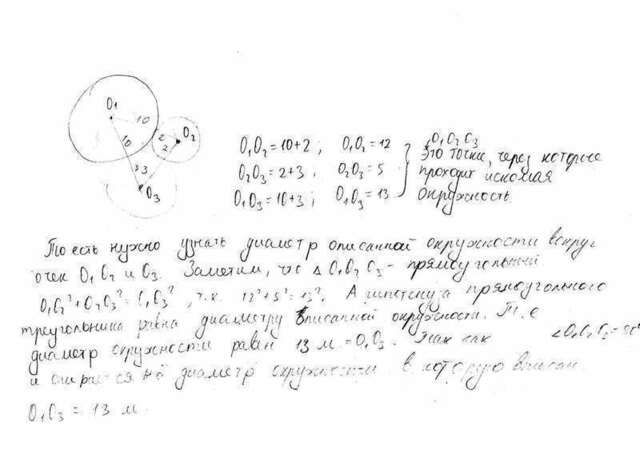 O₁
10
10
2
O₂
2
3
3
O₃
O₁O₂ = 10+2 ; O₁O₂ = 12
O₂O₃ = 2+3 ; O₂O₃ = 5
O₁O₃ = 10+3 ; O₁O₃ = 13
O₁O₂O₃
это точки, через которые
проходит искомая
окружность
То есть нужно узнать диаметр описанной окружности вокруг
точек O₁ O₂ и O₃. Заметим, что △ O₁O₂O₃ - прямоугольный
O₁O₂² + O₂O₃² = O₁O₃², т.к. 12² + 5² = 13². А гипотенуза прямоугольного
треугольника равна диаметру описанной окружности. Т.е
диаметр окружности равен 13 м = O₁O₃. Так как ∠O₁O₂O₃ = 90°
и опирается на диаметр окружности в которую вписан
O₁O₃ = 13 м.